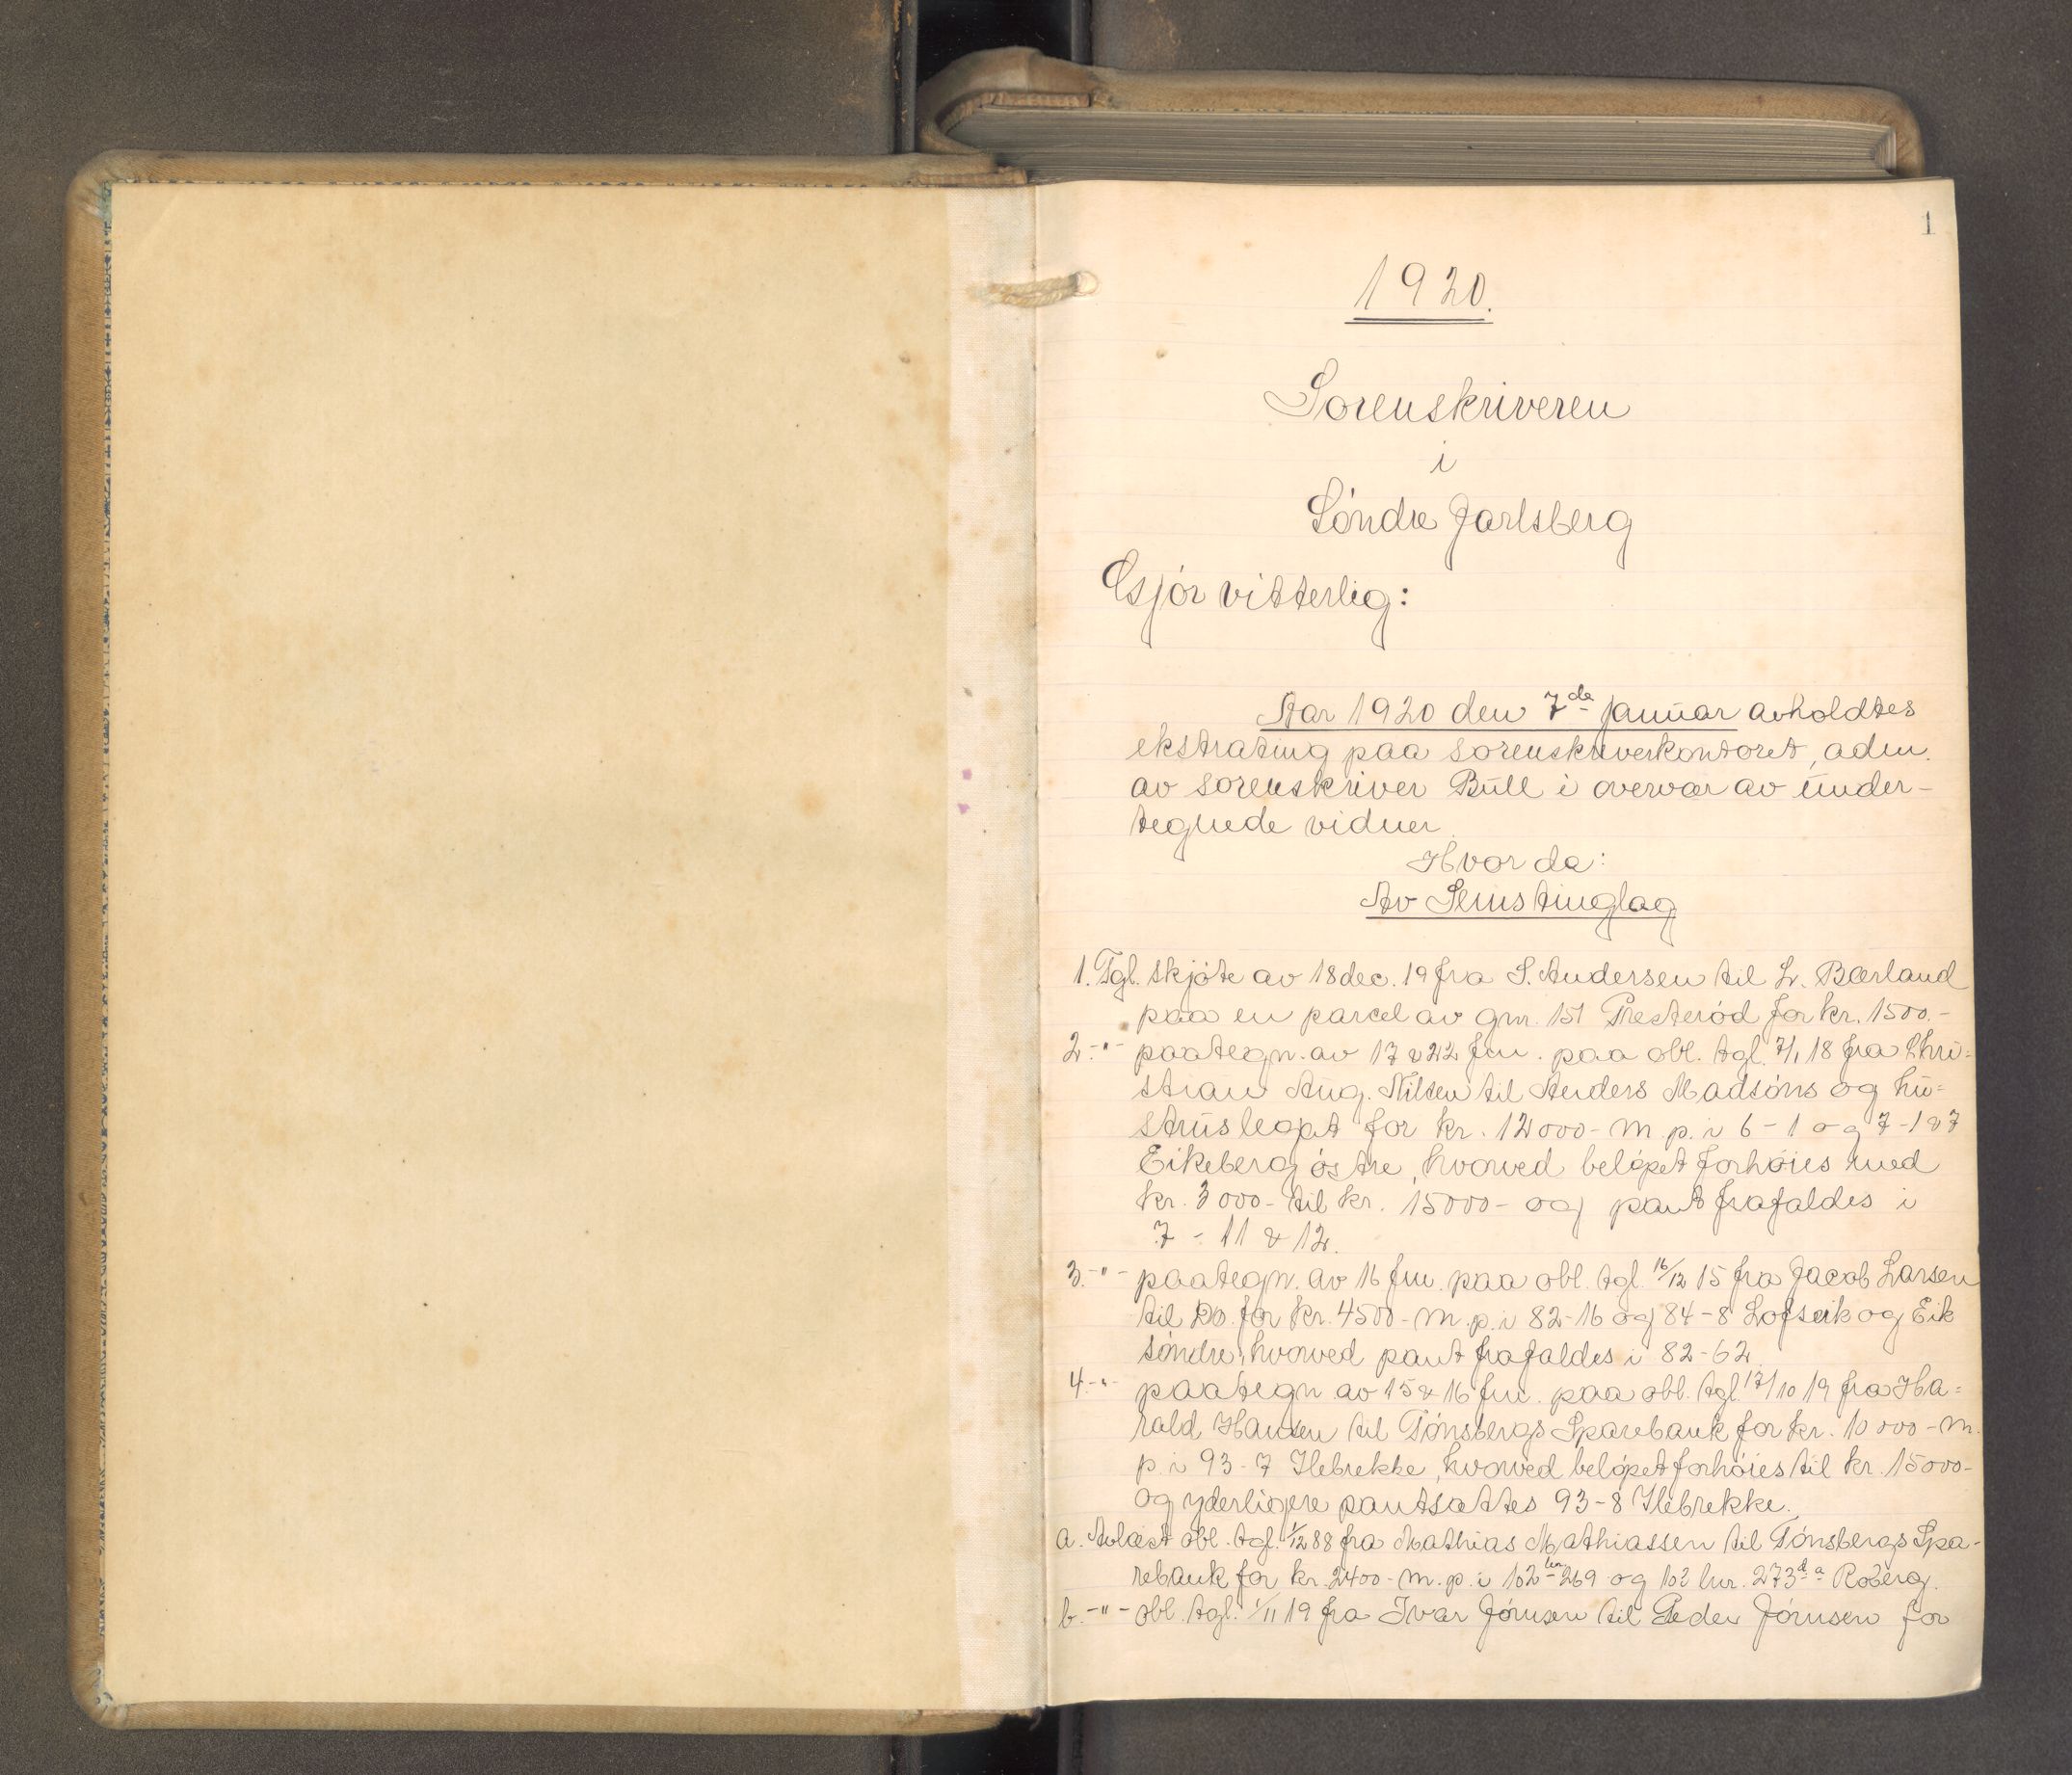 1
1920.
Sorenskriveren
i
Søndre Jarlsberg
Gjør vitterlig:
Aar 1920 den 7de januar avholdtes
ekstrating paa sorenskriverkontoret, adm.
av sorenskriver Bull i overvær av under-
tegnede vidner.
Hvor da:
Av Sems tinglag
1. Tgl. skjøte av 18 dec. 19 fra S. Andersen til L. Bærland
paa en parcel av gnr. 151 Presterød for kr. 1500.-
2.-"- paategn. av 17 & 22 f.m. paa obl. tgl. 7/1 18 fra Chri=
stian Aug. Nilsen til Anders Madsøns og hu=
strus legat for kr. 12000- m. p. i 6-1 og 7-1 & 7
Eikeberg østre, hvorved beløpet forhøies med
kr. 3000- til kr. 15000- og pant frafaldes i
7-11 & 12.
3.-"- paategn. av 16 f.m. paa obl. tgl. 16/12 15 fra Jacob Larsen
til Do. for kr. 4500- m. p. i 82-16 og 84-8 Lofseik og Eik
søndre, hvorved pant frafaldes i 82-62.
4.-"- paategn. av 15 & 16 f.m. paa obl. tgl. 17/10 19 fra Ha=
rald Hansen til Tønsbergs Sparebank for kr. 10000- m.
p. i 93-7 Ilebrekke, hvorved beløpet forhøies til kr. 15000-
og yderligere pantsættes 93-8 Ilebrekke.
a. Avlæst obl. tgl. 1/12 88 fra Mathias Mathiassen til Tønsbergs Spa-
rebank for kr. 2400- m. p. i 102 lnr 269 og 103 lnr. 273 Roberg.
b.-"- obl. tgl. 1/11 19 fra Ivar Jørnsen til Peder Jørnsen for